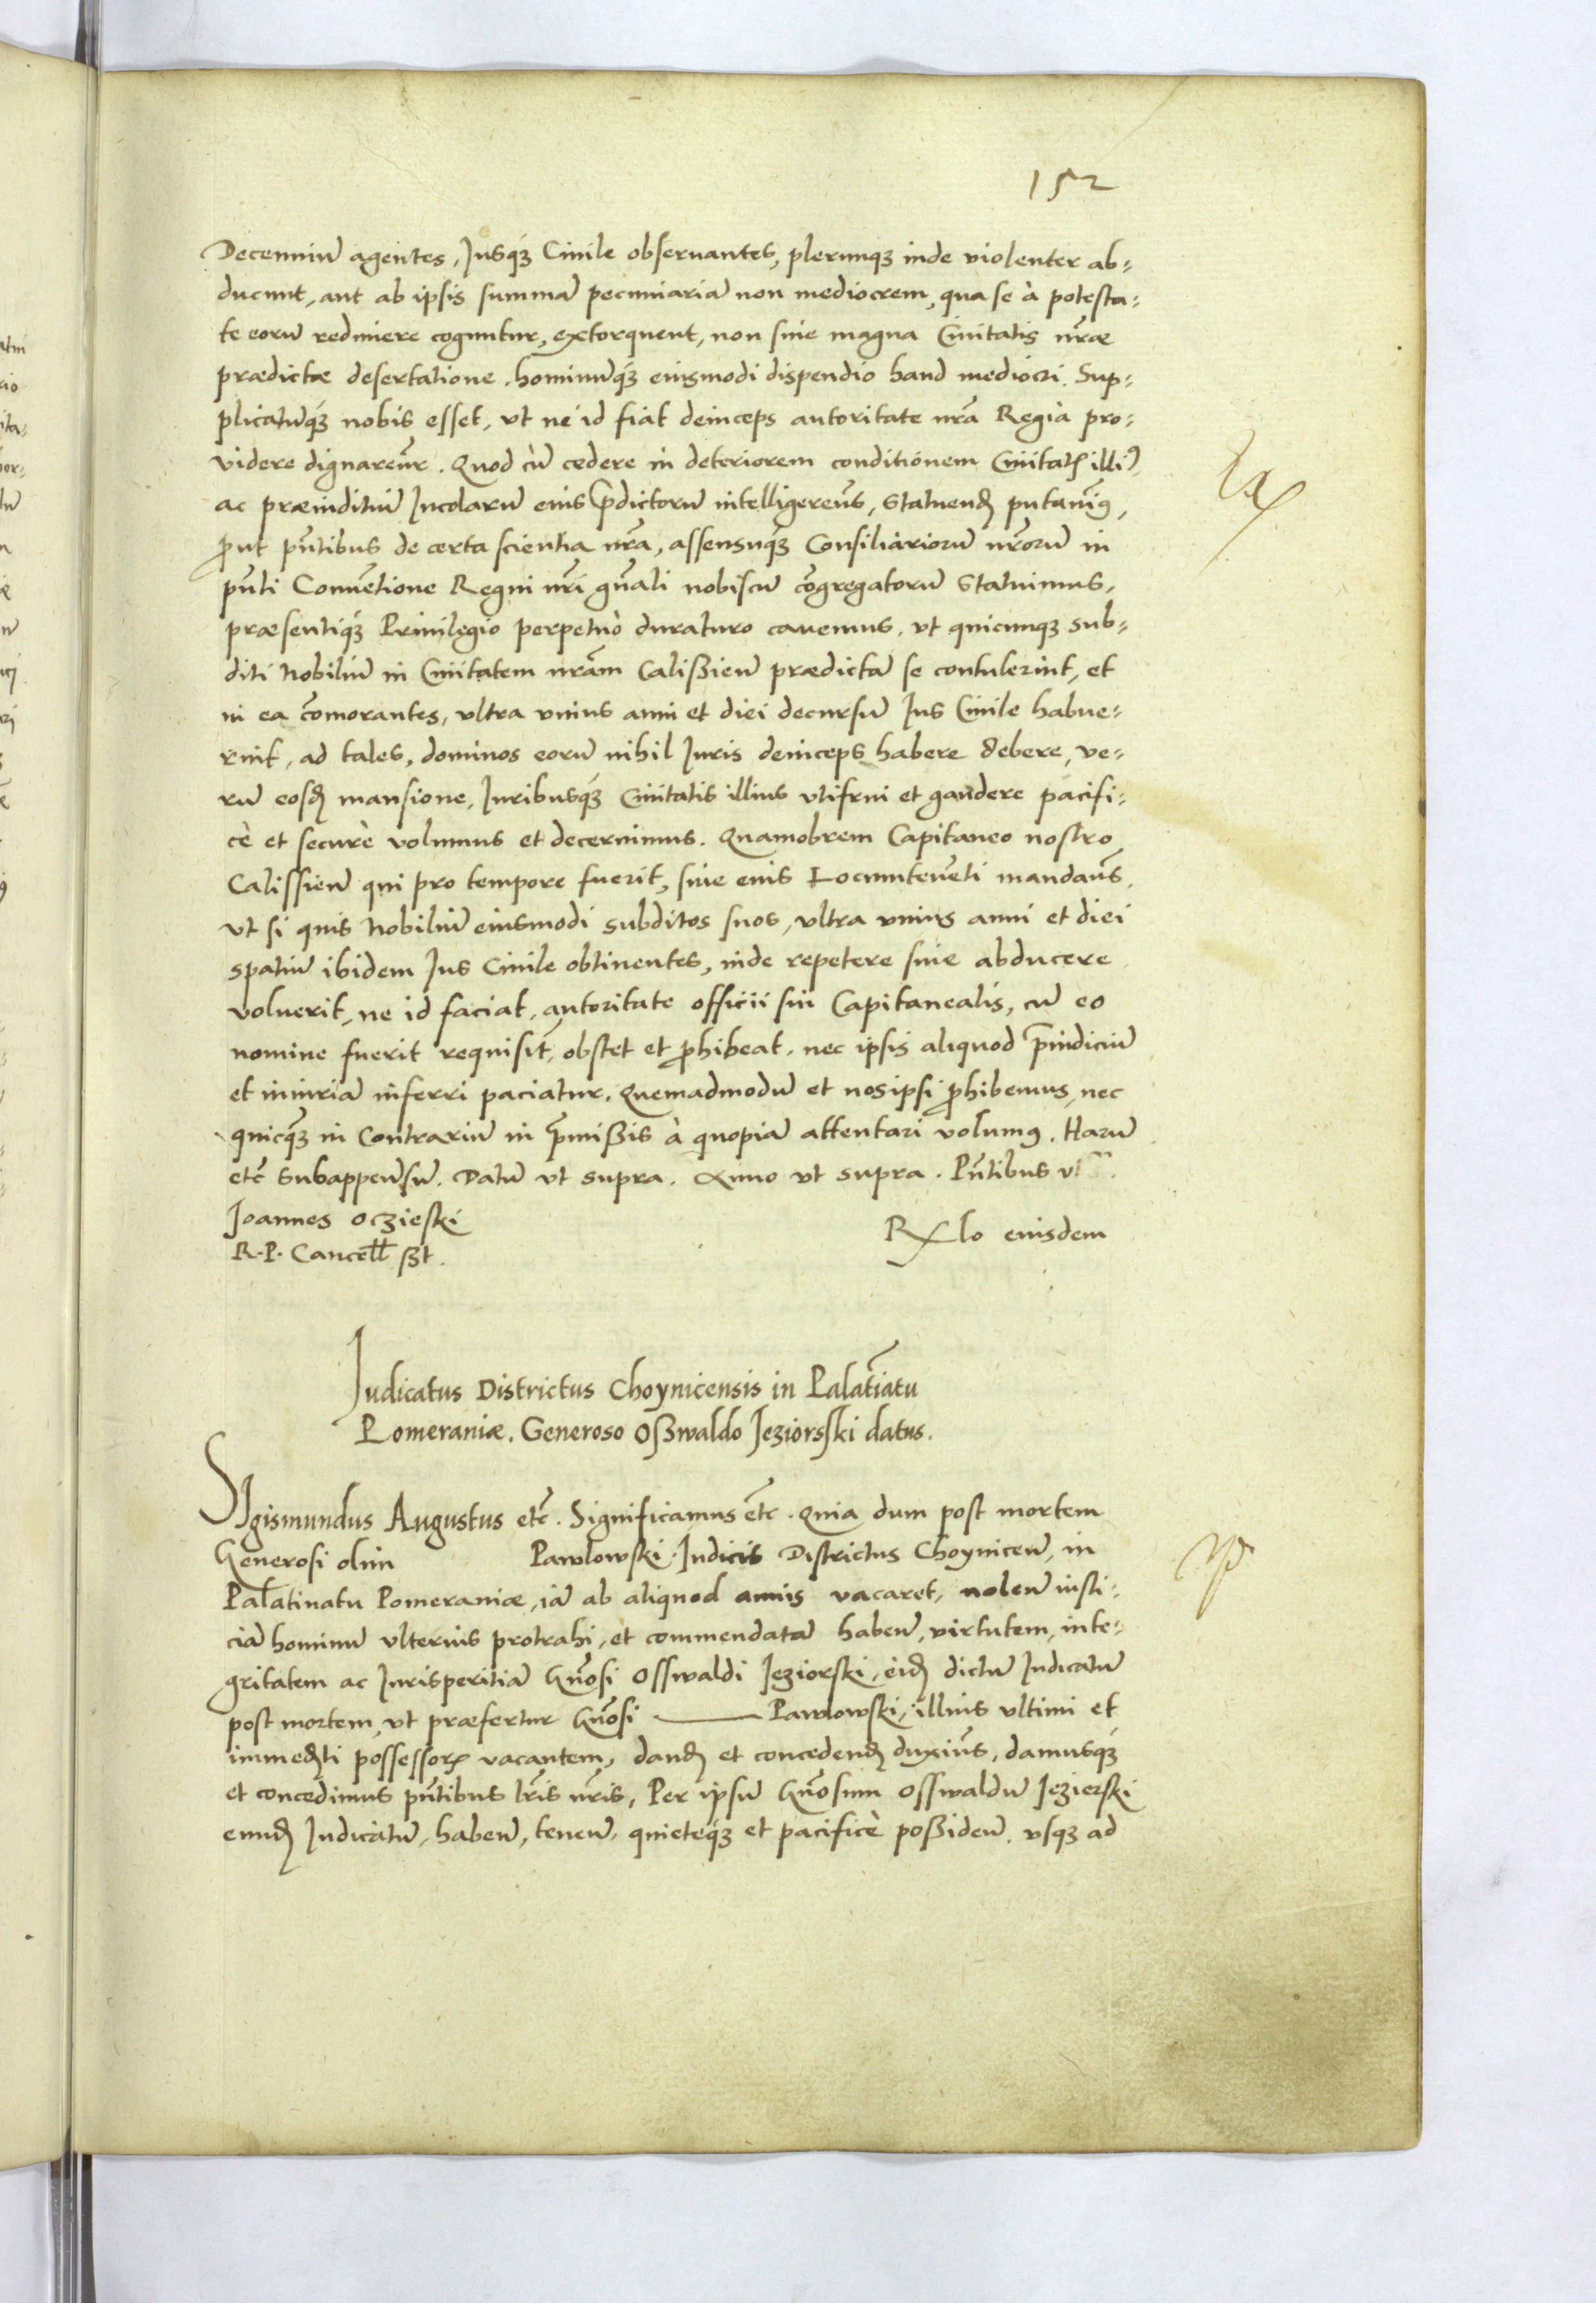 152
Decenniũ agentes, Jusq́ꝫ Ciuile obseruantes, plerunqꝫ inde violenter ab-
ducunt, aut ab ipsis summã pecuniariã non mediocrem, qua se à potesta-
te eorũ redimere coguntur, extorquent, non sine magna Ciuitatis nr̃æ
prædictæ desertatione, hominũq́ꝫ eiusmodi dispendio haud mediocri. Sup-
plicatũq́ꝫ nobis esset, vt ne id fiat deinceps autoritate nrã Regia pro-
videre dignaremr̃. Quod cũ cedere in deteriorem conditionem Ciuitatꝭ illiꝰ
ac præiuditiũ Incolarũ eius p̃dictorũ intelligerem̃s, Statuendꝭ putauimꝰ,
prout pñtibus de certa scientia nrã, assensuq́ꝫ Consiliariorũ nr̃orũ in
pñti Conuẽtione Regni nrĩ gñali nobiscũ cõgregatorũ Statuimus,
præsentiq́ꝫ Priuilegio perpetuò duraturo cauemus, vt quicunqꝫ sub-
diti Nobiliũ in Ciuitatem nrãm Calißien̄ prædictã se contulerint, et
in ea cõmorantes, vltra vnius anni et diei decursũ Jus Ciuile habue-
rint, ad tales, dominos eorũ nihil Juris deinceps habere debere, ve-
rũ eosdꝭ mansione, Juribusq́ꝫ Ciuitatis illius vtifrui et gaudere pacifi-
cè et securè volumus et decernimus. Quamobrem Capitaneo nostro
Calissien̄ qui pro tempore fuerit, siue eius Locumtenẽti mandam̃s,
vt si quis Nobiliũ eiusmodi subditos suos, vltra vnius anni et diei
spatiũ ibidem Jus Ciuile obtinentes, inde repetere siue abducere
voluerit, ne id faciat, autoritate officii sui Capitanealis, cũ eo
nomine fuerit requisit̃, obstet et prohibeat, nec ipsis aliquod p̃iudiciũ
et iniuriã inferri paciatur. Quemadmodũ et nosipsi prohibemus, nec
quicq̃ꝫ in Contrariũ in p̃mißis à quopiã attentari volumꝰ. Harũ
etc̃ subappensũ. Datũ vt supra. Anno vt supra. Pñtibus vt
Joannes Oczieski
R. P. Cancell ßt.
Rlo eiusdem
Judicatus Districtus Choynicensis in Palatĩatu
Pomeraniæ. Generoso Oßwaldo Jeziorsski datus.
SIgismundus Augustus etc̃. Significamus etc̃. Quia dum post mortem
Generosi olim Pawlowski Judicis Districtus Choynicen̄, in
Palatinatu Pomeraniæ, iã ab aliquod annis vacaret, nolen̄ iusti-
ciã hominũ vlterius protrahi, et commendatã haben̄, virtutem, inte-
gritatem ac Jurisperitiã Gñosi Osswaldi Jeziorski, eidꝭ dictũ Judicatũ
post mortem, vt præfertur Gñosi —— Pawlowski, illius vltimi et
immedꝭti possessorꝭ vacantem, dandꝭ et concedendꝭ duxim̃s, damusq́ꝫ
et concedimus pñtibus lr̃is nr̃is, Per ipsũ Gñosum Osswaldũ Jezierski
eundꝭ Judicatũ, haben̄, tenen̄, quieteq́ꝫ et pacificè poßiden̄, vsqꝫ ad